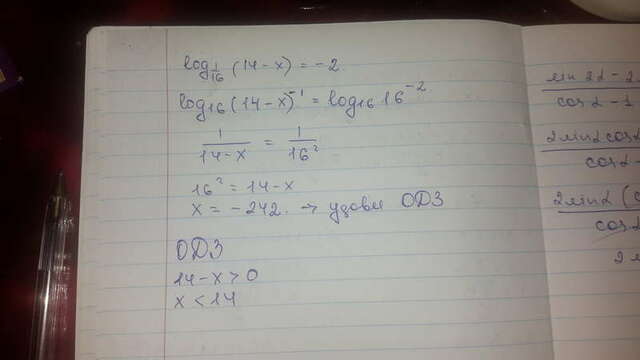 log_{1/16} (14-x) = -2
log_{16} (14-x)^{-1} = log_{16} 16^{-2}
1/(14-x) = 1/16^2
16^2 = 14-x
x = -242. → удовл ОДЗ
ОДЗ
14-x > 0
x < 14
sin 2α - 2
cos α - 1
2 sin α cos
cos α -
2 sin α (
cos α
2